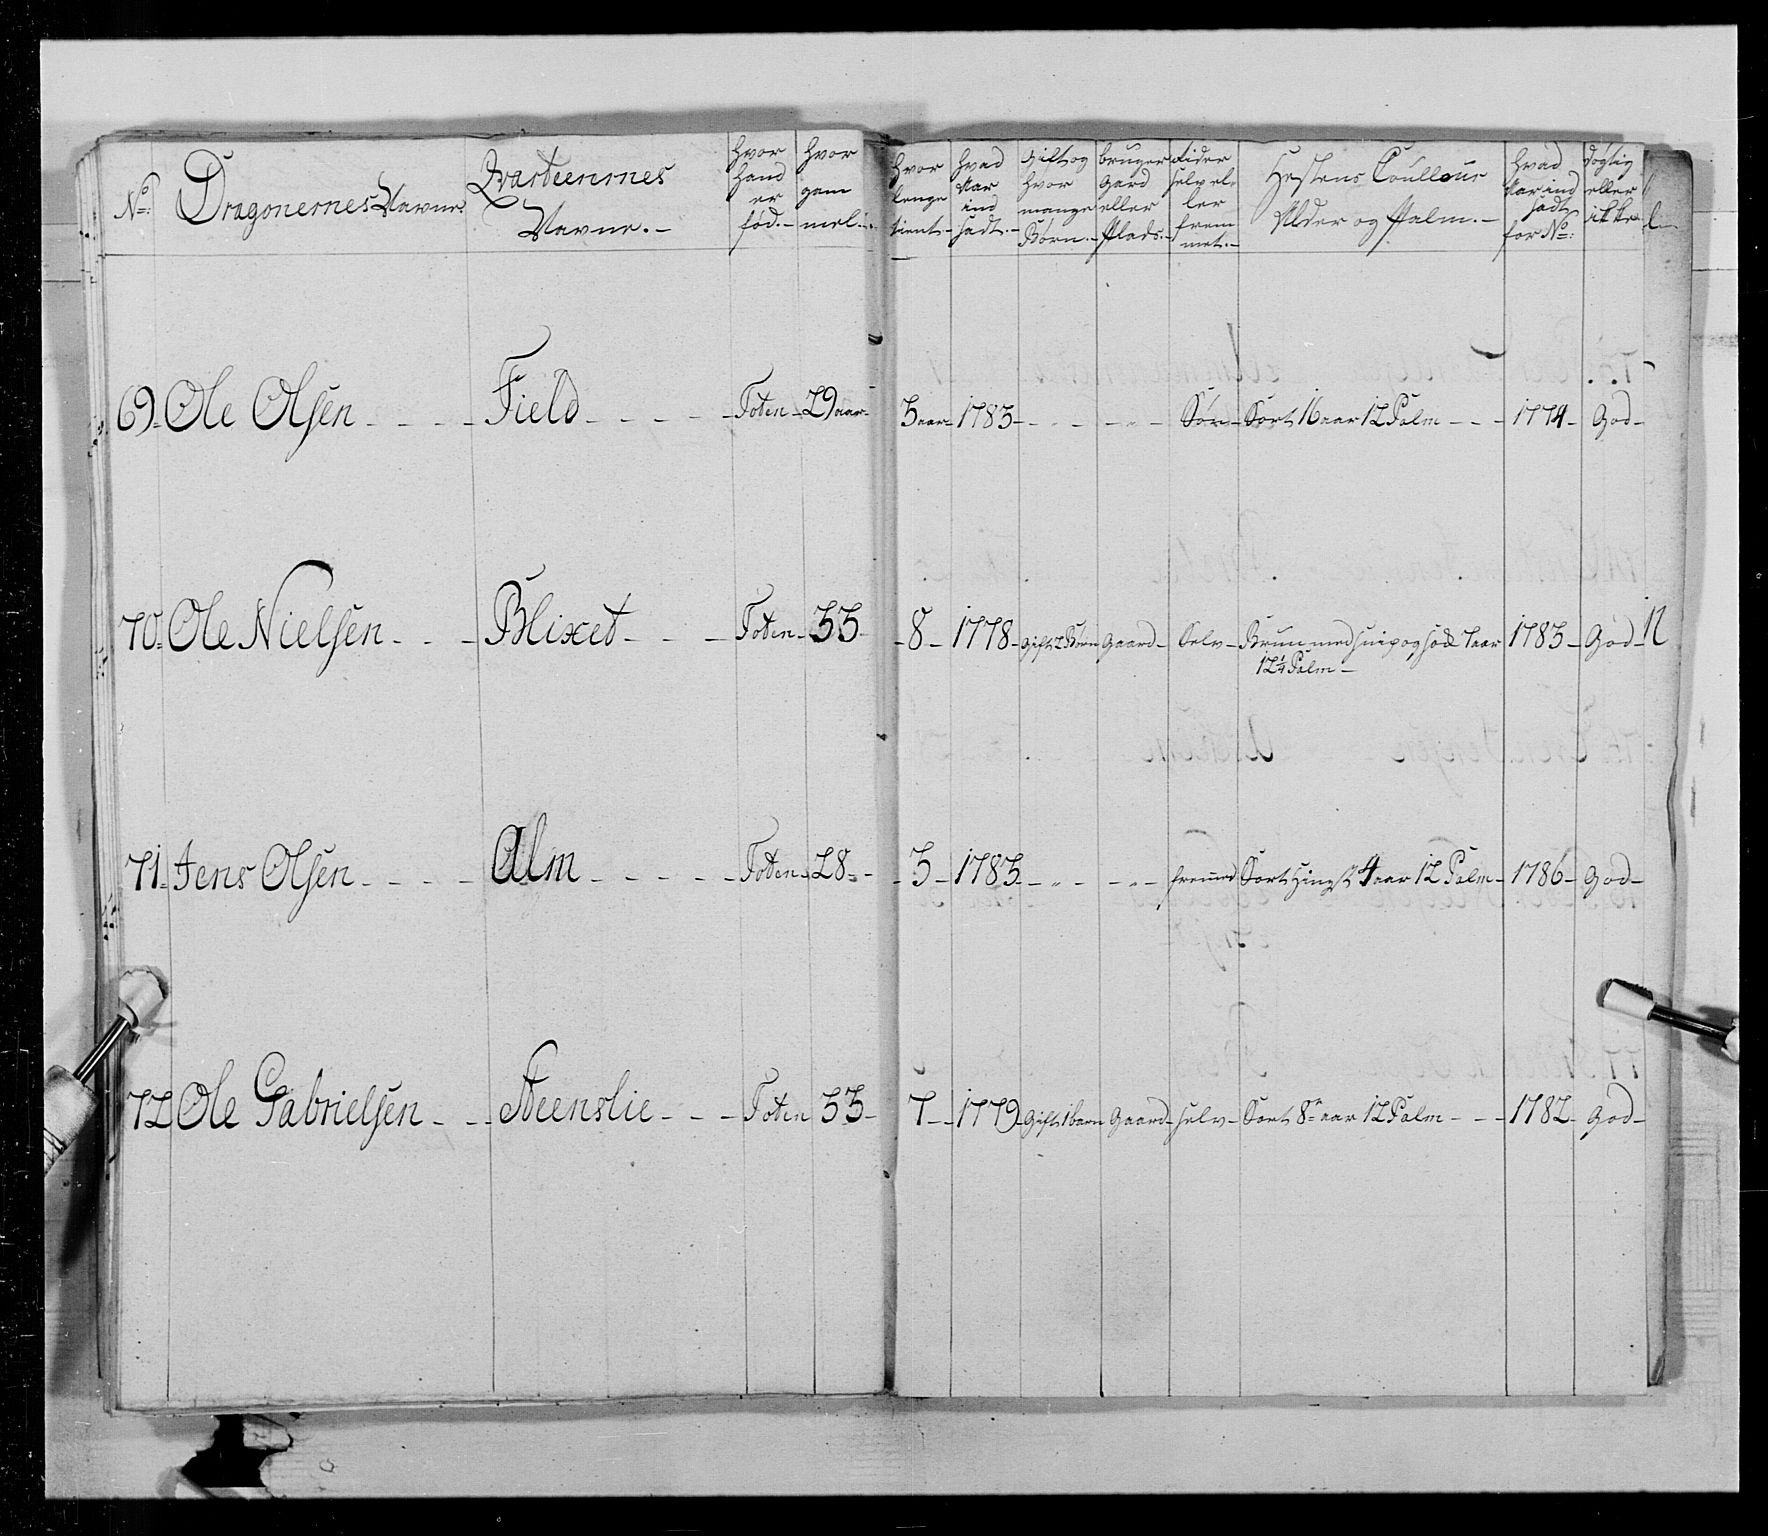 No: Dragonernes Navne Qvarteernes Navne.- Hvor hand er fød.- Hvor gam mel.- Hvor lenge tient.- Hvad Aar ind sadt.- Gift og hvor mange Børn.- bruger Gard eller Plads.- Rider selv el- ler frem met.- Hestens Coulleur Alder og Palm.- Hvad Aar ind sadt for No: døgtig eller ikke
69. Ole Olsen - - - - Field - - - - - Toten - 29 aar - 3 aar - 1783 - - - - - „ - Sort 16 aar 12 Palm - - - 1774 - God -
70. Ole Nielsen - - - Blixet - - - Toten - 33 - - 8 - 1778 - Gift 2 Børn Gaard - Selv - Brun med snip og 7 aar 1783 - God -
12¼ Palm -
71. Jens Olsen - - - - Alm - - - - - Toten - 28 - - 3 - 1783 - - „ - - „ - fremmed Sort Hingst 4 aar 12 Palm - 1786 - God -
72 Ole Gabrielsen - - Steenslie - - - Toten 33 - 7 - - 1779 - Gift 1 barn Gaard - selv - Sort 8 aar 12 Palm - - - 1782 - God -